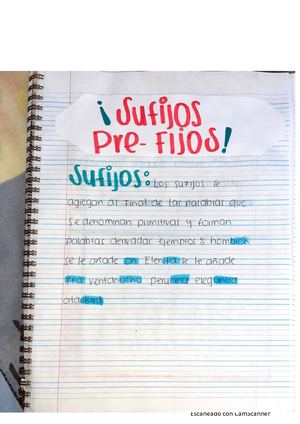 ¡Sufijos
Pre-Fijos!
Sufijos: Los sufijos se
agregan al final de las palabras que
se denominan primitivas y forman
palabras derivadas ejemplos: hombrón
se le añade on Elenita se le añade
ita ventanucho peruano elegancia
atadura
Escaneado con CamScanner